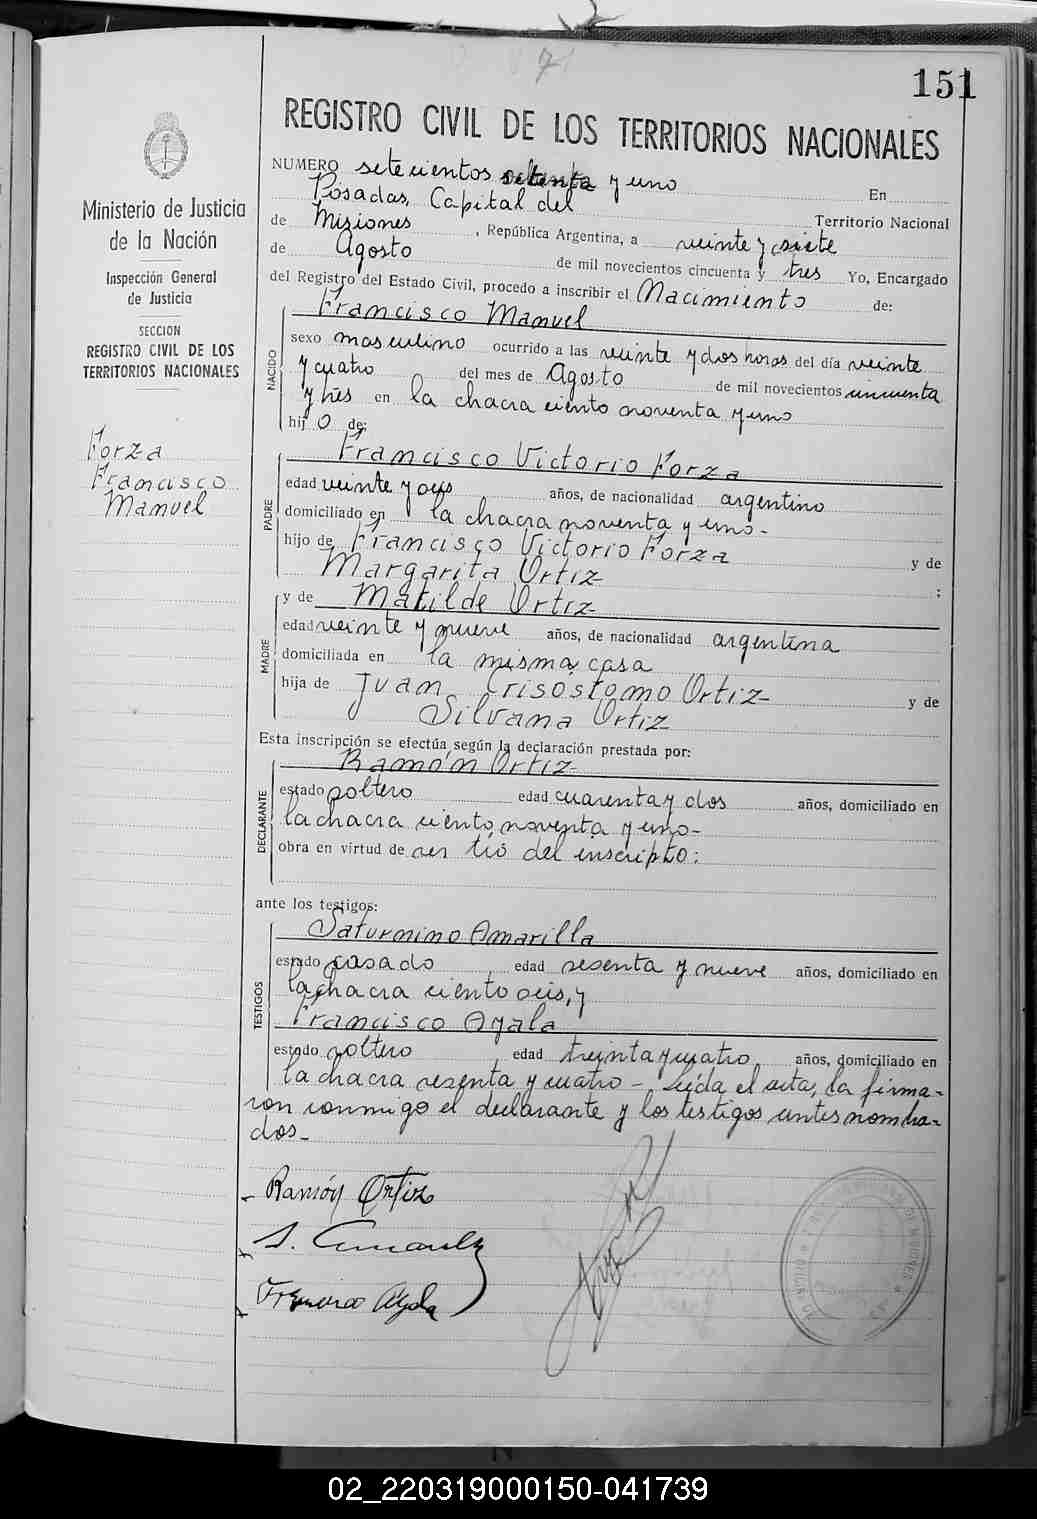 151
REGISTRO CIVIL DE LOS TERRITORIOS NACIONALES
Ministerio de Justicia
de la Nación
Inspección General
de Justicia
SECCION
REGISTRO CIVIL DE LOS
TERRITORIOS NACIONALES
Forza
Francisco
Manuel
NUMERO setecientos setenta y uno En
Posadas, Capital del Territorio Nacional
de Misiones, República Argentina, a veinte y siete
de Agosto de mil novecientos cincuenta y tres Yo, Encargado
del Registro del Estado Civil, procedo a inscribir el Nacimiento de:
NACIDO
Francisco Manuel
sexo masculino ocurrido a las veinte y dos horas del día veinte
y cuatro del mes de Agosto de mil novecientos cincuenta
y tres en la chacra ciento noventa y uno
hijo de:
PADRE
Francisco Victorio Forza
edad veinte y seis años, de nacionalidad argentino
domiciliado en la chacra noventa y uno-
hijo de Francisco Victorio Forza y de
Margarita Ortiz ;
MADRE
y de Matilde Ortiz
edad veinte y nueve años, de nacionalidad argentina
domiciliada en la misma casa
hija de Juan Crisóstomo Ortiz y de
Silvana Ortiz
Esta inscripción se efectúa según la declaración prestada por:
DECLARANTE
Ramón Ortiz
estado soltero edad cuarenta y dos años, domiciliado en
la chacra ciento noventa y uno-
obra en virtud de ser tío del inscripto:
ante los testigos:
TESTIGOS
Saturnino Amarilla
estado casado, edad sesenta y nueve años, domiciliado en
la chacra ciento seis, y
Francisco Ayala
estado soltero, edad treinta y cuatro años, domiciliado en
la chacra sesenta y cuatro - Leída el acta, la firma-
ron conmigo el declarante y los testigos antes nombra-
dos-
Ramón Ortiz
02_220319000150-041739